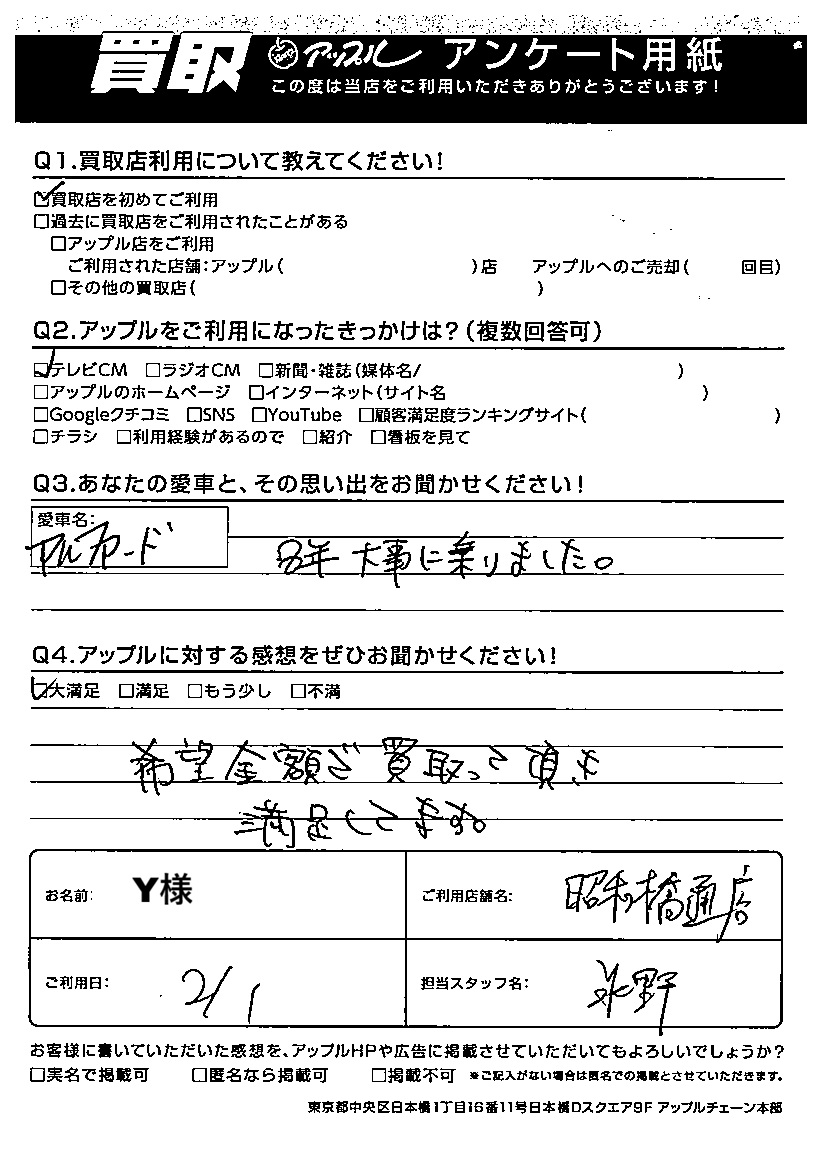 買取 アップル アンケート用紙
この度は当店をご利用いただきありがとうございます!
Q1.買取店利用について教えてください!
☑買取店を初めてご利用
□過去に買取店をご利用されたことがある
□アップル店をご利用
ご利用された店舗:アップル( )店 アップルへのご売却( 回目)
□その他の買取店( )
Q2.アップルをご利用になったきっかけは?(複数回答可)
☑テレビCM □ラジオCM □新聞・雑誌(媒体名/ )
□アップルのホームページ □インターネット(サイト名 )
□Googleクチコミ □SNS □YouTube □顧客満足度ランキングサイト( )
□チラシ □利用経験があるので □紹介 □看板を見て
Q3.あなたの愛車と、その思い出をお聞かせください!
愛車名:
アルファード 8年大事に乗りました。
Q4.アップルに対する感想をぜひお聞かせください!
☑大満足 □満足 □もう少し □不満
希望金額で買取って頂き
満足してます。
お名前: Y様 ご利用店舗名: 昭和橋通店
ご利用日: 2/1 担当スタッフ名: 水野
お客様に書いていただいた感想を、アップルHPや広告に掲載させていただいてもよろしいでしょうか?
□実名で掲載可 □匿名なら掲載可 □掲載不可 ※ご記入がない場合は匿名での掲載とさせていただきます。
東京都中央区日本橋1丁目16番11号日本橋Dスクエア9F アップルチェーン本部